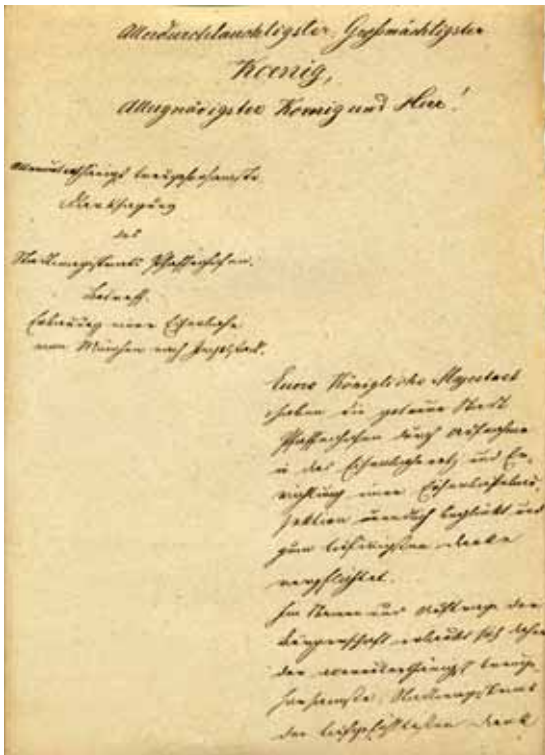 Allerdurchlauchtigster, Großmächtigster
Koenig,
Allergnädigster Koenig und Herr!
Allerunterthänigst treugehorsamste
Danksagung
des
Stadtmagistrats Pfaffenhofen.
Betreff.
Erbauung einer Eisenbahn
von München nach Ingolstadt.
Eure Königliche Majestaet
haben die getreue Stadt
Pfaffenhofen durch Aufnahme
in das Eisenbahnnetz und Er-
richtung einer Eisenbahnbau-
sektion unendlich beglückt und
zum tiefinnigsten Danke
verpflichtet.
Im Namen und Auftrage der
Bürgerschaft erlaubt sich daher
der allerunterthänigst treuge-
horsamste Stadtmagistrat
den tiefgefühltesten Dank